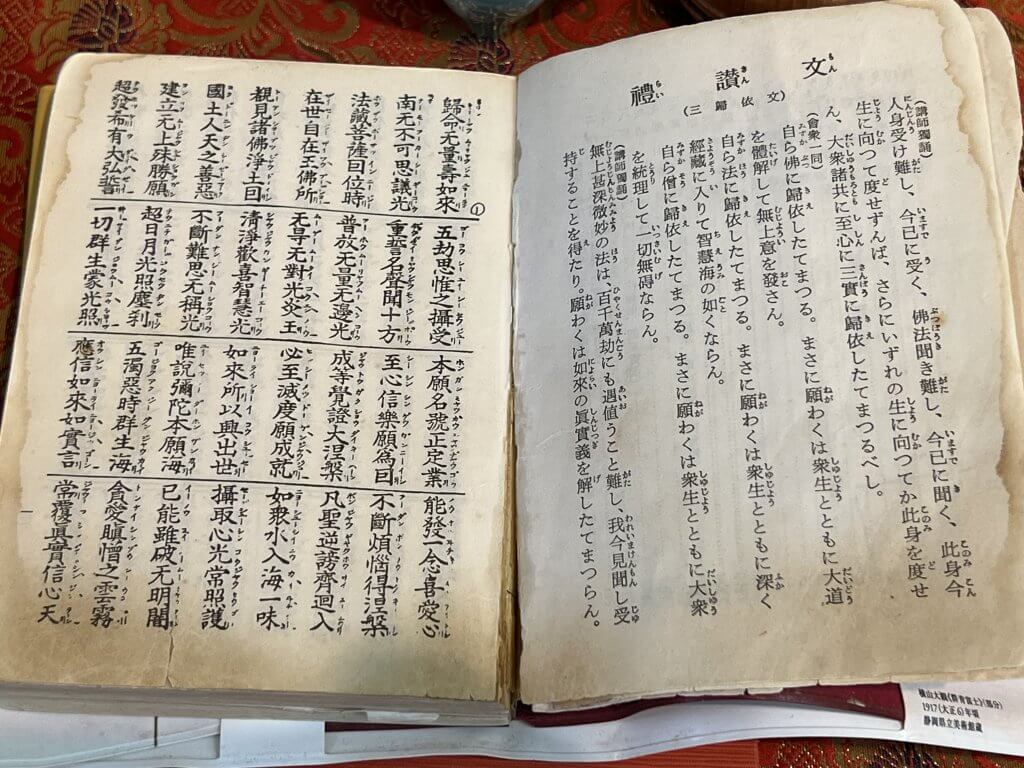 禮讃文
(三歸依文)
(講師獨誦)
人身受け難し、今已に受く、佛法聞き難し、今已に聞く、此身今
生に向つて度せずんば、さらにいずれの生に向つてか此身を度せ
ん、大衆諸共に至心に三寶に歸依したてまつるべし。
(會衆一同)
自ら佛に歸依したてまつる。まさに願わくは衆生とともに大道
を體解して無上意を發さん。
自ら法に歸依したてまつる。まさに願わくは衆生とともに深く
經藏に入りて智慧海の如くならん。
自ら僧に歸依したてまつる。まさに願わくは衆生とともに大衆
を統理して一切無碍ならん。
(講師獨誦)
無上甚深微妙の法は、百千萬劫にも遇値うこと難し、我今見聞し受
持することを得たり。願わくは如來の眞實義を解したてまつらん。
歸命无量壽如來
南无不可思議光
法藏菩薩因位時
在世自在王佛所
覩見諸佛淨土因
國土人天之善惡
建立无上殊勝願
超發希有大弘誓
①
五劫思惟之攝受
重誓名聲聞十方
普放无量无邊光
无㝵无對光炎王
清淨歡喜智慧光
不斷難思无稱光
超日月光照塵刹
一切群生蒙光照
本願名號正定業
至心信樂願爲因
成等覺證大涅槃
必至滅度願成就
如來所以興出世
唯說彌陀本願海
五濁惡時群生海
應信如來如實言
能發一念喜愛心
不斷煩惱得涅槃
凡聖逆謗齊廻入
如衆水入海一味
攝取心光常照護
已能雖破无明闇
貪愛瞋憎之雲霧
常覆眞實信心天
横山大観《群青富士》(部分)
1917(大正6)年頃
静岡県立美術館蔵